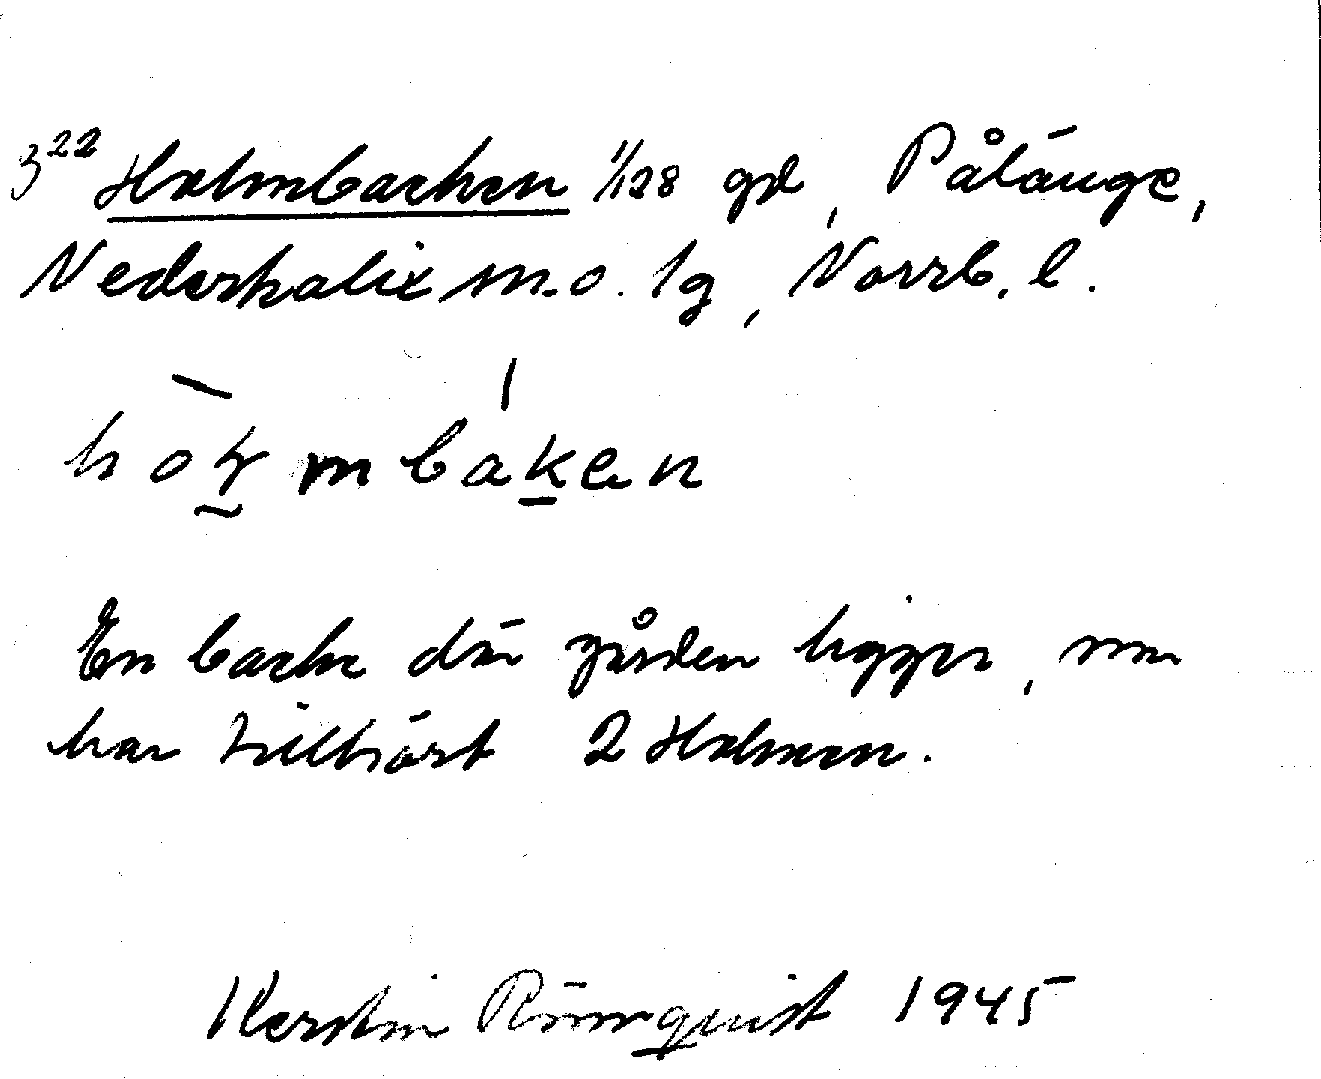 3²² Holmbacken 1/128 gd, Pålänge,
Nederkalix m.o. lg, Norrb. l.
hoɽmbaken
En backe där gården ligger, som
har tillhört 2 Holmen.
Kerstin Rönnquist 1945